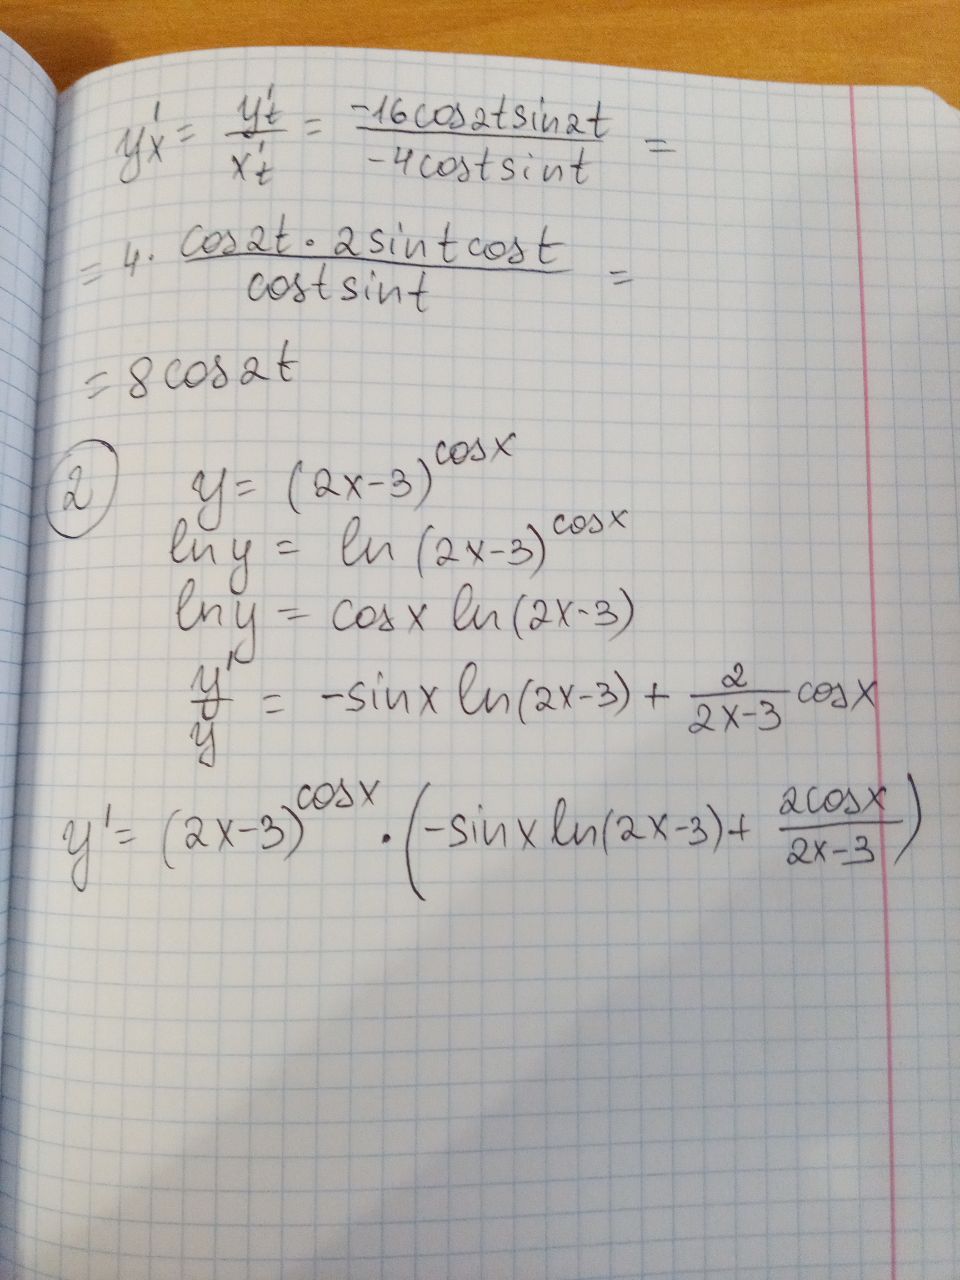 y'x = y't / x't = -16cos2tsin2t / -4costsint =
= 4· cos2t · 2sintcost / costsint =
= 8cos2t
2 y = (2x-3)^cosx
ln y = ln (2x-3)^cosx
ln y = cosx ln(2x-3)
y' / y = -sinx ln(2x-3) + 2 / 2x-3 cosx
y' = (2x-3)^cosx · (-sinx ln(2x-3) + 2cosx / 2x-3)